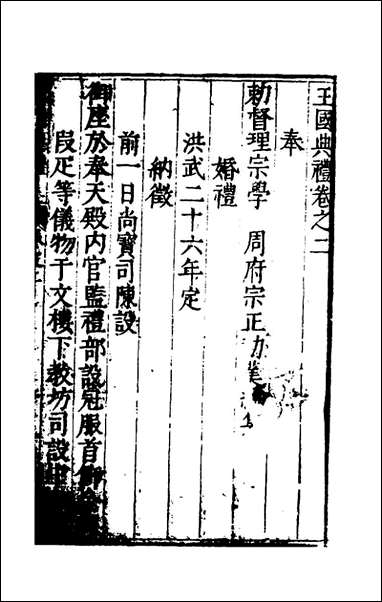 王國典禮卷之二
奉
勑督理宗學 周府宗正
婚禮
洪武二十六年定
納徵
前一日尚寶司陳設
御座於奉天殿内官監禮部設冠服首飾
叚疋等儀物于文樓下教坊司設